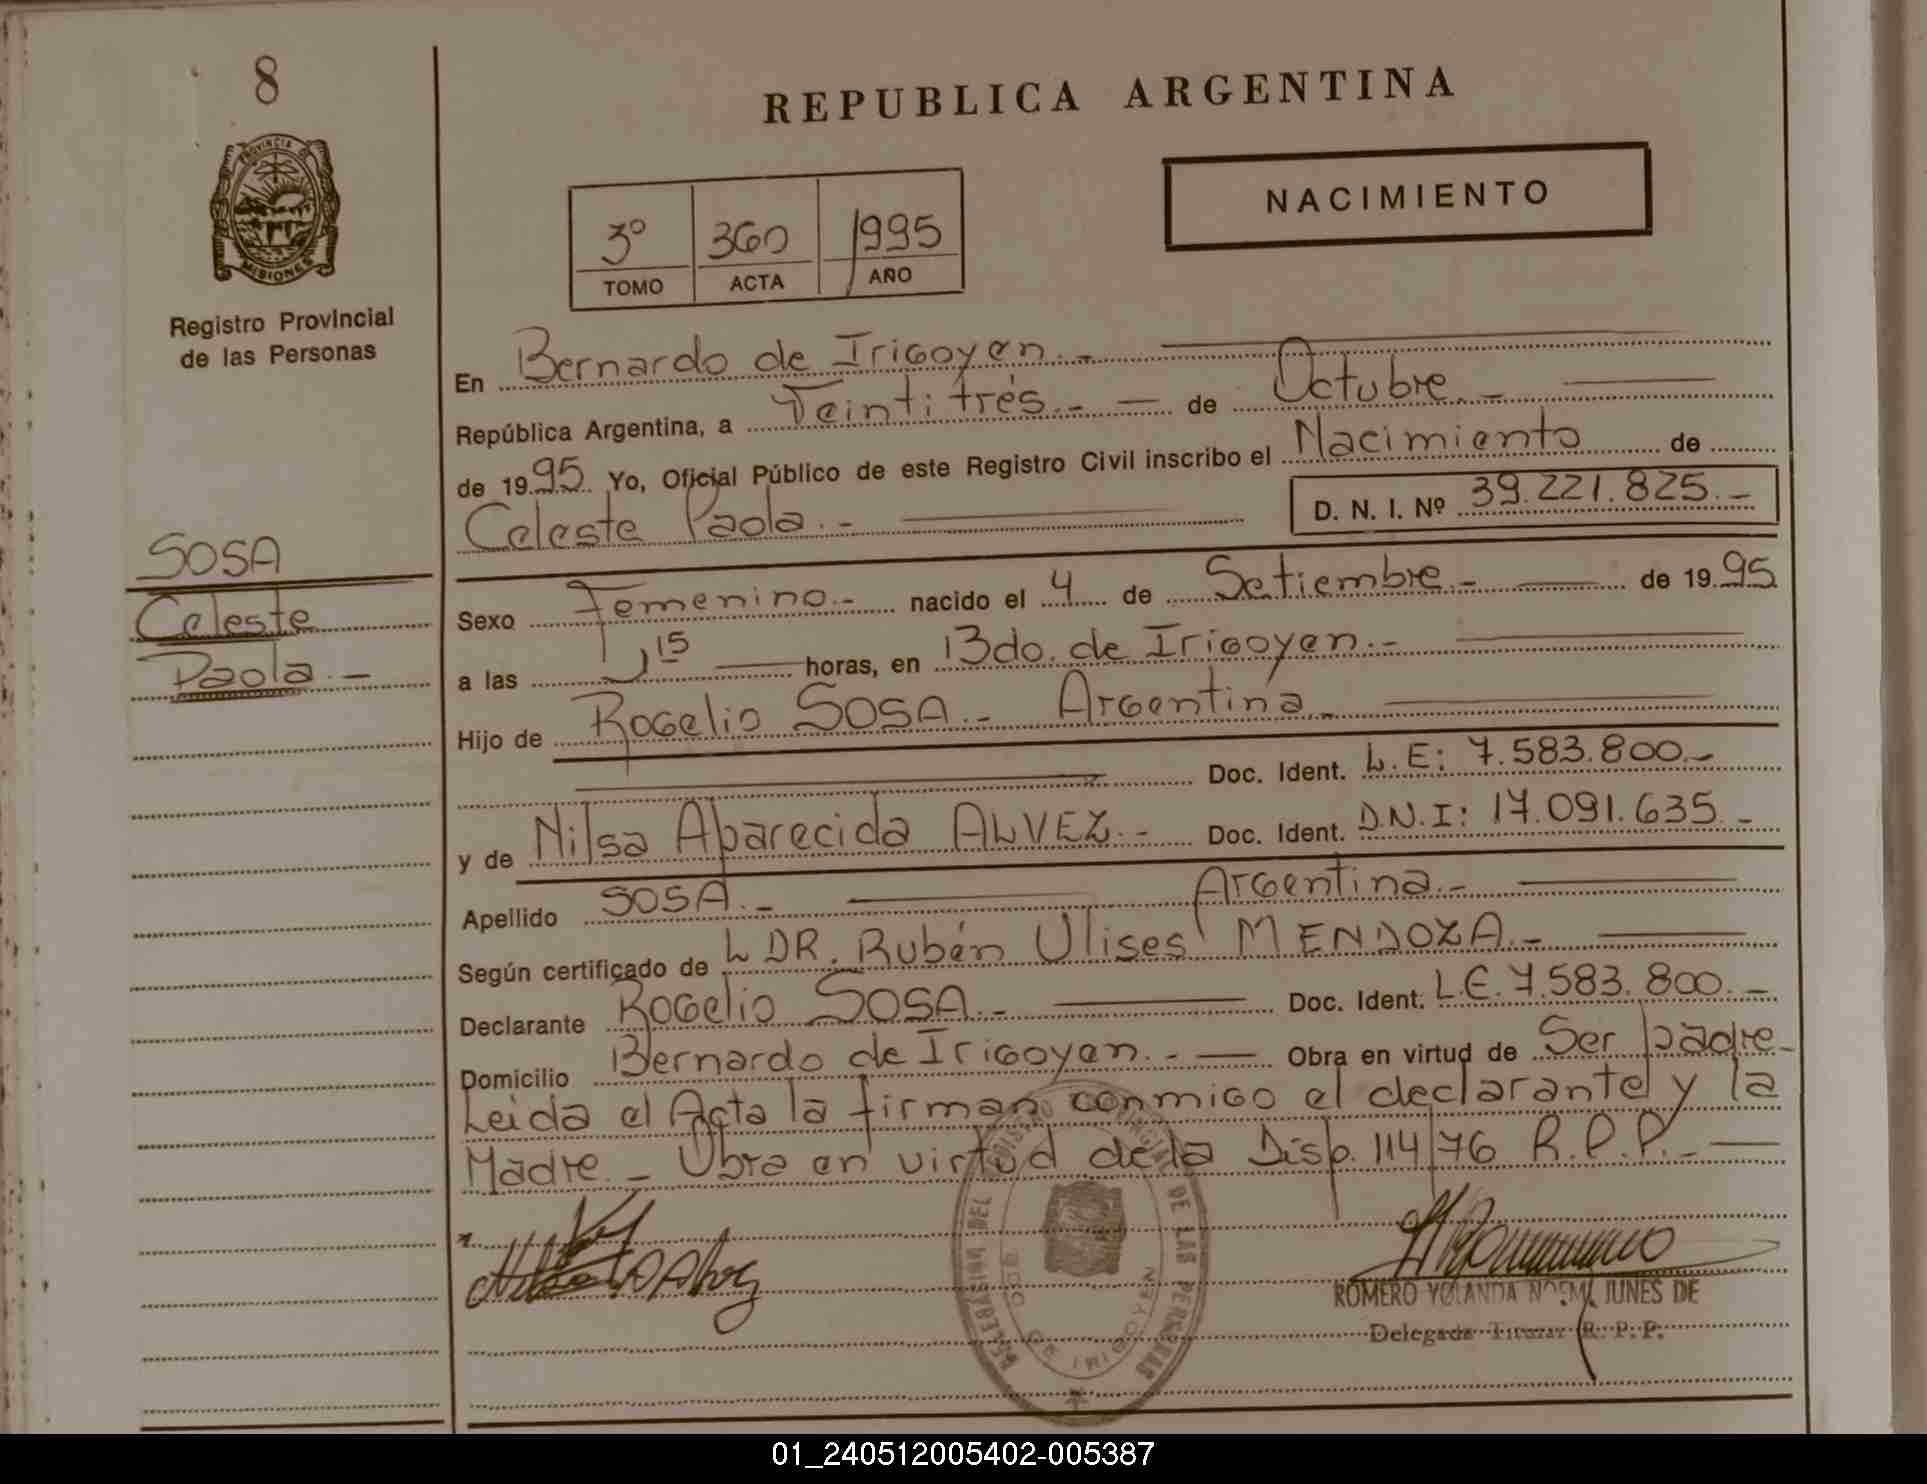 8
REPUBLICA ARGENTINA
PROVINCIA DE
MISIONES
Registro Provincial
de las Personas
3º 360 1995
TOMO ACTA AÑO
NACIMIENTO
En Bernardo de Irigoyen.-
República Argentina, a Veintitrés.- de Octubre.-
de 1995 Yo, Oficial Público de este Registro Civil inscribo el Nacimiento de
Celeste Paola.- D. N. I. Nº 39.221.825.-
SOSA
Celeste
Paola.-
Sexo Femenino.- nacido el 4 de Setiembre.- de 1995
a las 1,15 horas, en Bdo. de Irigoyen.-
Hijo de Rogelio SOSA.- Argentina.-
Doc. Ident. L.E: 7.583.800.-
y de Nilsa Aparecida ALVEZ.- Doc. Ident. D.N.I: 17.091.635.-
Apellido SOSA.- Argentina.-
Según certificado de L DR. Rubén Ulises MENDOZA.-
Declarante Rogelio SOSA.- Doc. Ident. L.E. 7.583.800.-
Domicilio Bernardo de Irigoyen.- Obra en virtud de Ser padre-
Leida el Acta la firman conmigo el declarante y la
Madre.- Obra en virtud de la Disp. 114/76 R.P.P.-
DELEGACION DEL REGISTRO PROVINCIAL DE LAS PERSONAS
BDO DE IRIGOYEN
ROMERO YOLANDA NOEMI JUNES DE
Delegada Titular R. P. P.
01_240512005402-005387